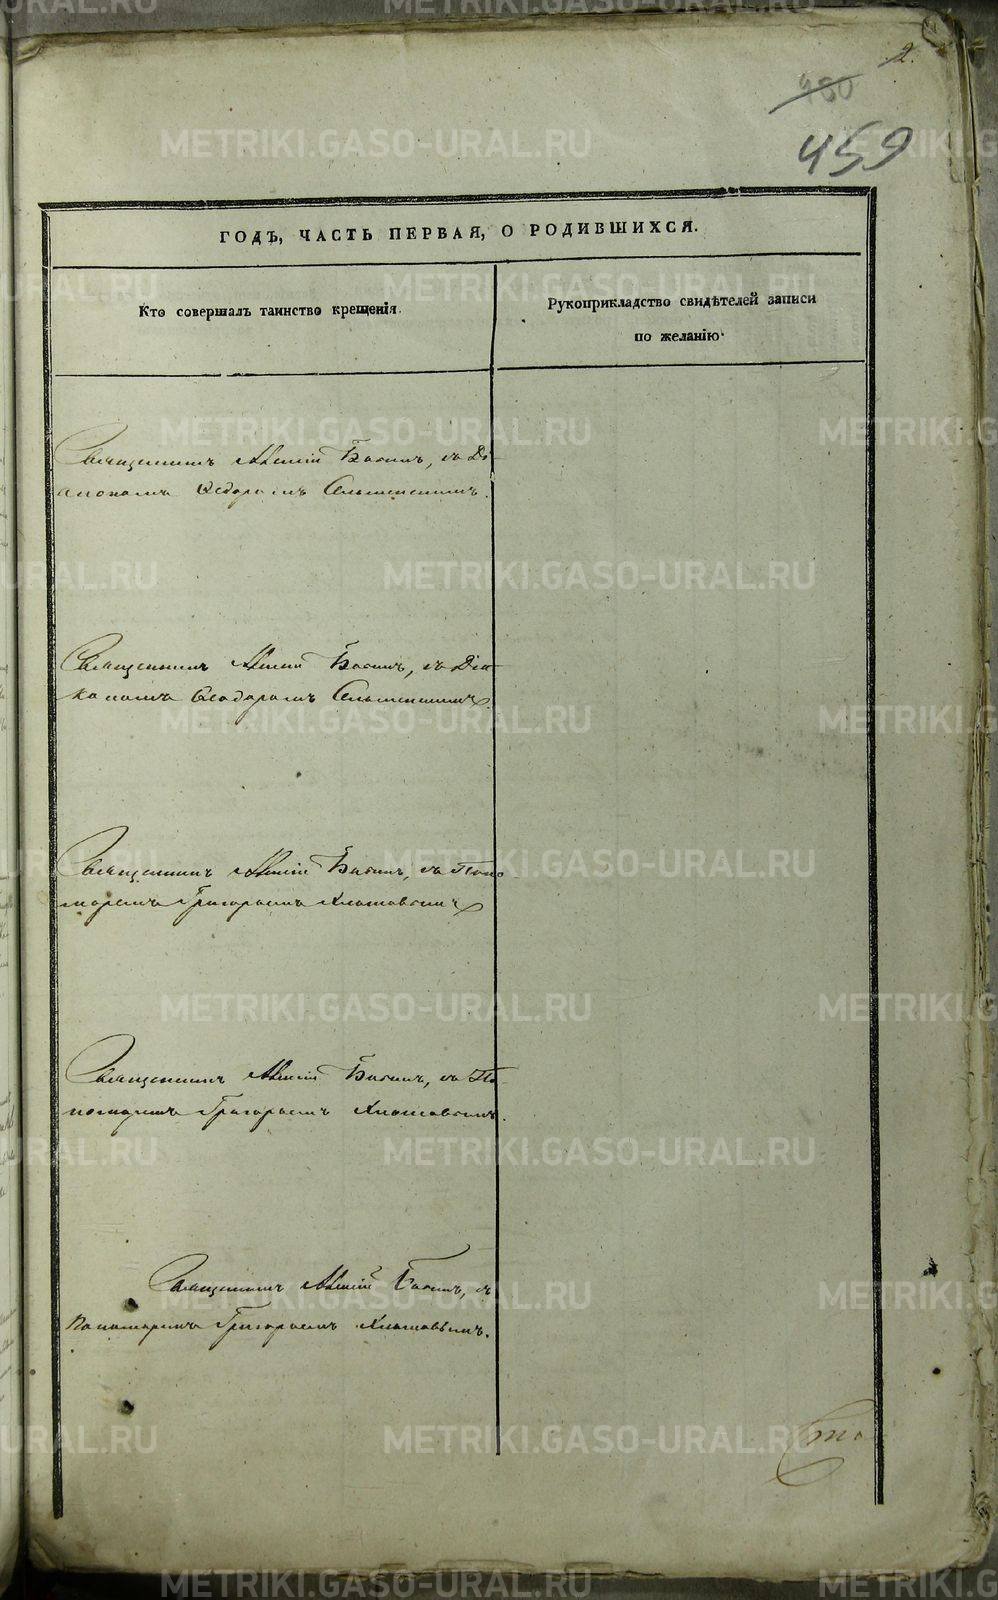 2.
480
459
ГОДЪ, ЧАСТЬ ПЕРВАЯ, О РОДИВШИХСЯ.
Кто совершалъ таинство крещенія.
Рукоприкладство свидѣтелей записи
по желанію.
Священникъ Алексій Бабинъ, съ Ді
акономъ Ѳедоромъ
Священникъ Алексій Бабинъ, съ Діа
кономъ Ѳеодоромъ
Священникъ Алексій Бабинъ, съ Поно
маремъ Григорьемъ
Священникъ Алексій Бабинъ, съ По-
номаремъ Григорьемъ
Священникъ Алексій Бабинъ, съ
Пономаремъ Григорьемъ
METRIKI.GASO-URAL.RU